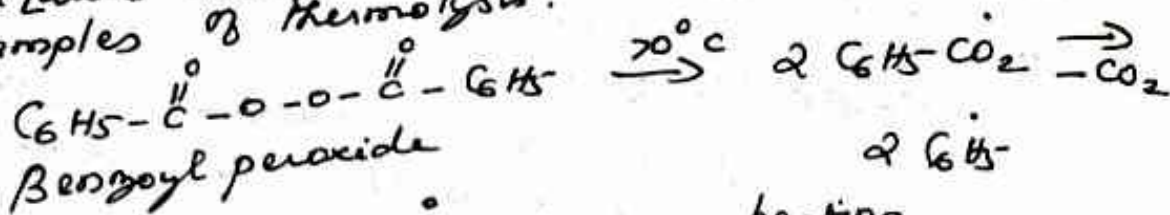 mples of thermolysis.
C6H5-C(=O)-O-O-C(=O)-C6H5 70°C → 2 C6H5-ĊO2 → -CO2
Benzoyl peroxide 2 C6Ḣ5